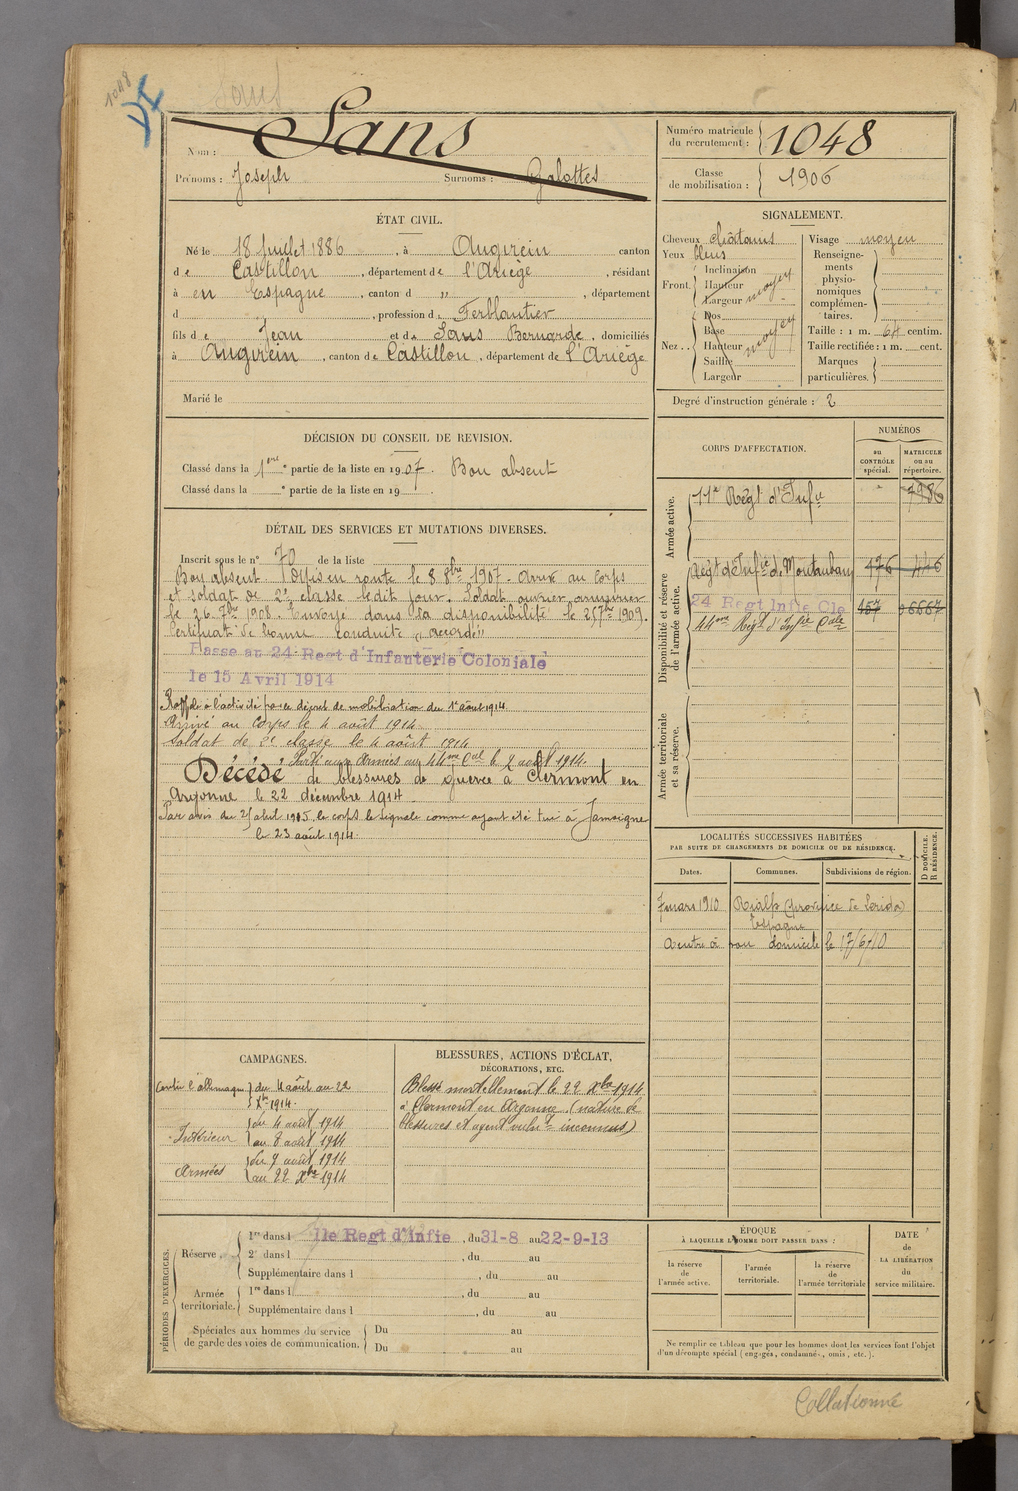 1048
VI
Sans
Nom : Sans
Prénoms : Joseph Surnoms : Galottes
Numéro matricule du recrutement : 1048
Classe de mobilisation : 1906
ÉTAT CIVIL.
Né le 18 Juillet 1886, à Augirein canton
de Castillon, département de l'Ariège, résidant
à en Espagne, canton d „ , département
d , profession de Ferblantier
fils de Jean et de Sans Bernarde, domiciliés
à Augirein, canton de Castillon, département de l'Ariège
Marié le
SIGNALEMENT.
Cheveux châtains
Yeux bleus
Front. Inclinaison
Hauteur
Largeur moyen
Nez.. Dos
Base
Hauteur moyen
Saillie
Largeur
Visage moyen
Renseignements physionomiques complémentaires.
Taille : 1 m. 64 centim.
Taille rectifiée : 1 m. cent.
Marques particulières.
Degré d'instruction générale : 2
DÉCISION DU CONSEIL DE REVISION.
Classé dans la 1ère partie de la liste en 1907. Bon absent
Classé dans la e partie de la liste en 19 .
DÉTAIL DES SERVICES ET MUTATIONS DIVERSES.
Inscrit sous le n° 70 de la liste
Bon absent. Mis en route le 8 8bre 1907. Arrivé au corps
et soldat de 2e classe ledit jour. Soldat ouvrier armurier
le 26 7bre 1908. Envoyé dans la disponibilité le 25 7bre 1909.
Certificat de bonne conduite „accordé"
Passe au 24 Regt d'Infanterie Coloniale
le 15 Avril 1914
Rappelé à l'activité par le décret de mobilisation du 1er août 1914.
Arrivé au Corps le 4 août 1914.
Soldat de 2e classe le 4 août 1914
Parti aux Armées au 44me Cal le 9 août 1914.
Décédé de blessures de guerre à Clermont en
Argonne le 22 décembre 1914
Par avis du 25 avril 1915 le corps le signale comme ayant été tué à Jamoigne
le 23 août 1914.
CORPS D'AFFECTATION.
NUMÉROS
au CONTRÔLE spécial.
MATRICULE ou au répertoire.
Armée active.
11e Régt d'Infie 7986
Disponibilité et réserve de l'armée active.
Régt d'Infie de Montauban 476 446
24 Regt Infie Cle 457 06667
44me Régt d'Infie Cale
Armée territoriale et sa réserve.
LOCALITÉS SUCCESSIVES HABITÉES
PAR SUITE DE CHANGEMENTS DE DOMICILE OU DE RÉSIDENCE.
D DOMICILE. R RÉSIDENCE.
Dates. Communes. Subdivisions de région.
7 mars 1910 Rialp (province de Lerida)
Espagne
Rentre à son domicile le 17/6/10
CAMPAGNES.
Contre l'allemagne du 4 août au 22
Xbre 1914.
Intérieur du 4 août 1914
au 8 août 1914
Armées du 9 août 1914
au 22 Xbre 1914
BLESSURES, ACTIONS D'ÉCLAT,
DÉCORATIONS, ETC.
Blessé mortellement le 22 Xbre 1914
à Clermont en Argonne. (nature de
blessures et agent vulnt inconnus)
PÉRIODES D'EXERCICES.
Réserve. 1re dans l 11e Regt d'infie, du 31-8 au 22-9-13
2e dans l , du au
Supplémentaire dans l , du au
Armée territoriale. 1re dans l , du au
Supplémentaire dans l , du au
Spéciales aux hommes du service de garde des voies de communication. Du au
Du au
ÉPOQUE
À LAQUELLE L'HOMME DOIT PASSER DANS :
la réserve de l'armée active.
l'armée territoriale.
la réserve de l'armée territoriale
DATE de LA LIBÉRATION du service militaire.
Ne remplir ce tableau que pour les hommes dont les services font l'objet
d'un décompte spécial (engagés, condamnés, omis, etc.).
Collationné